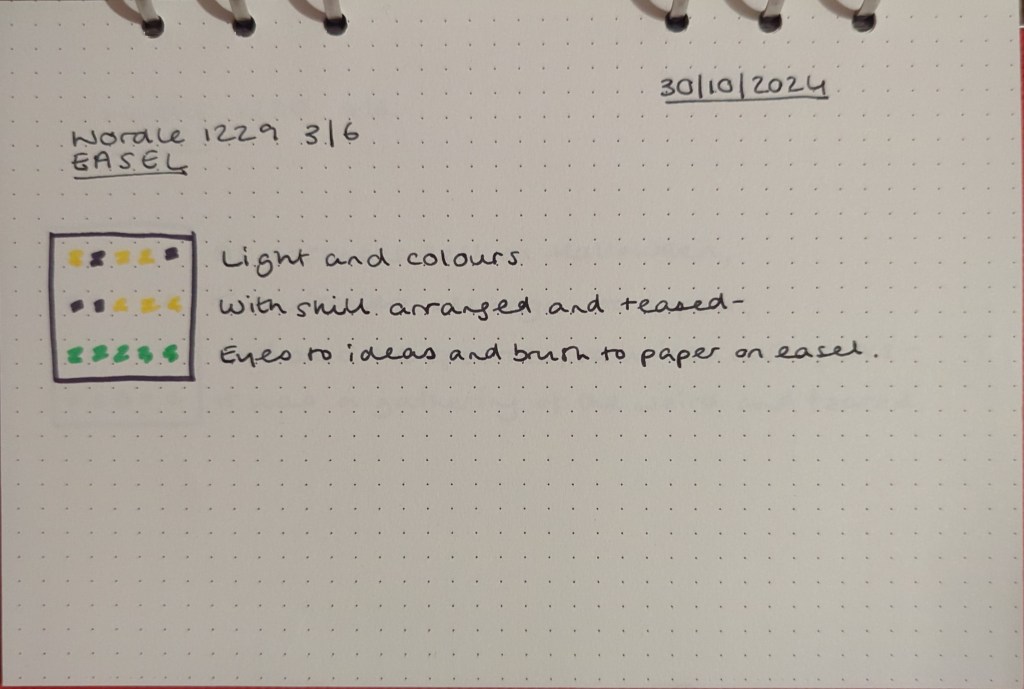 30/10/2024
Wordle 1229 3/6
EASEL
Light and colours
With skill arranged and teased-
Eyes to ideas and brush to paper on easel.